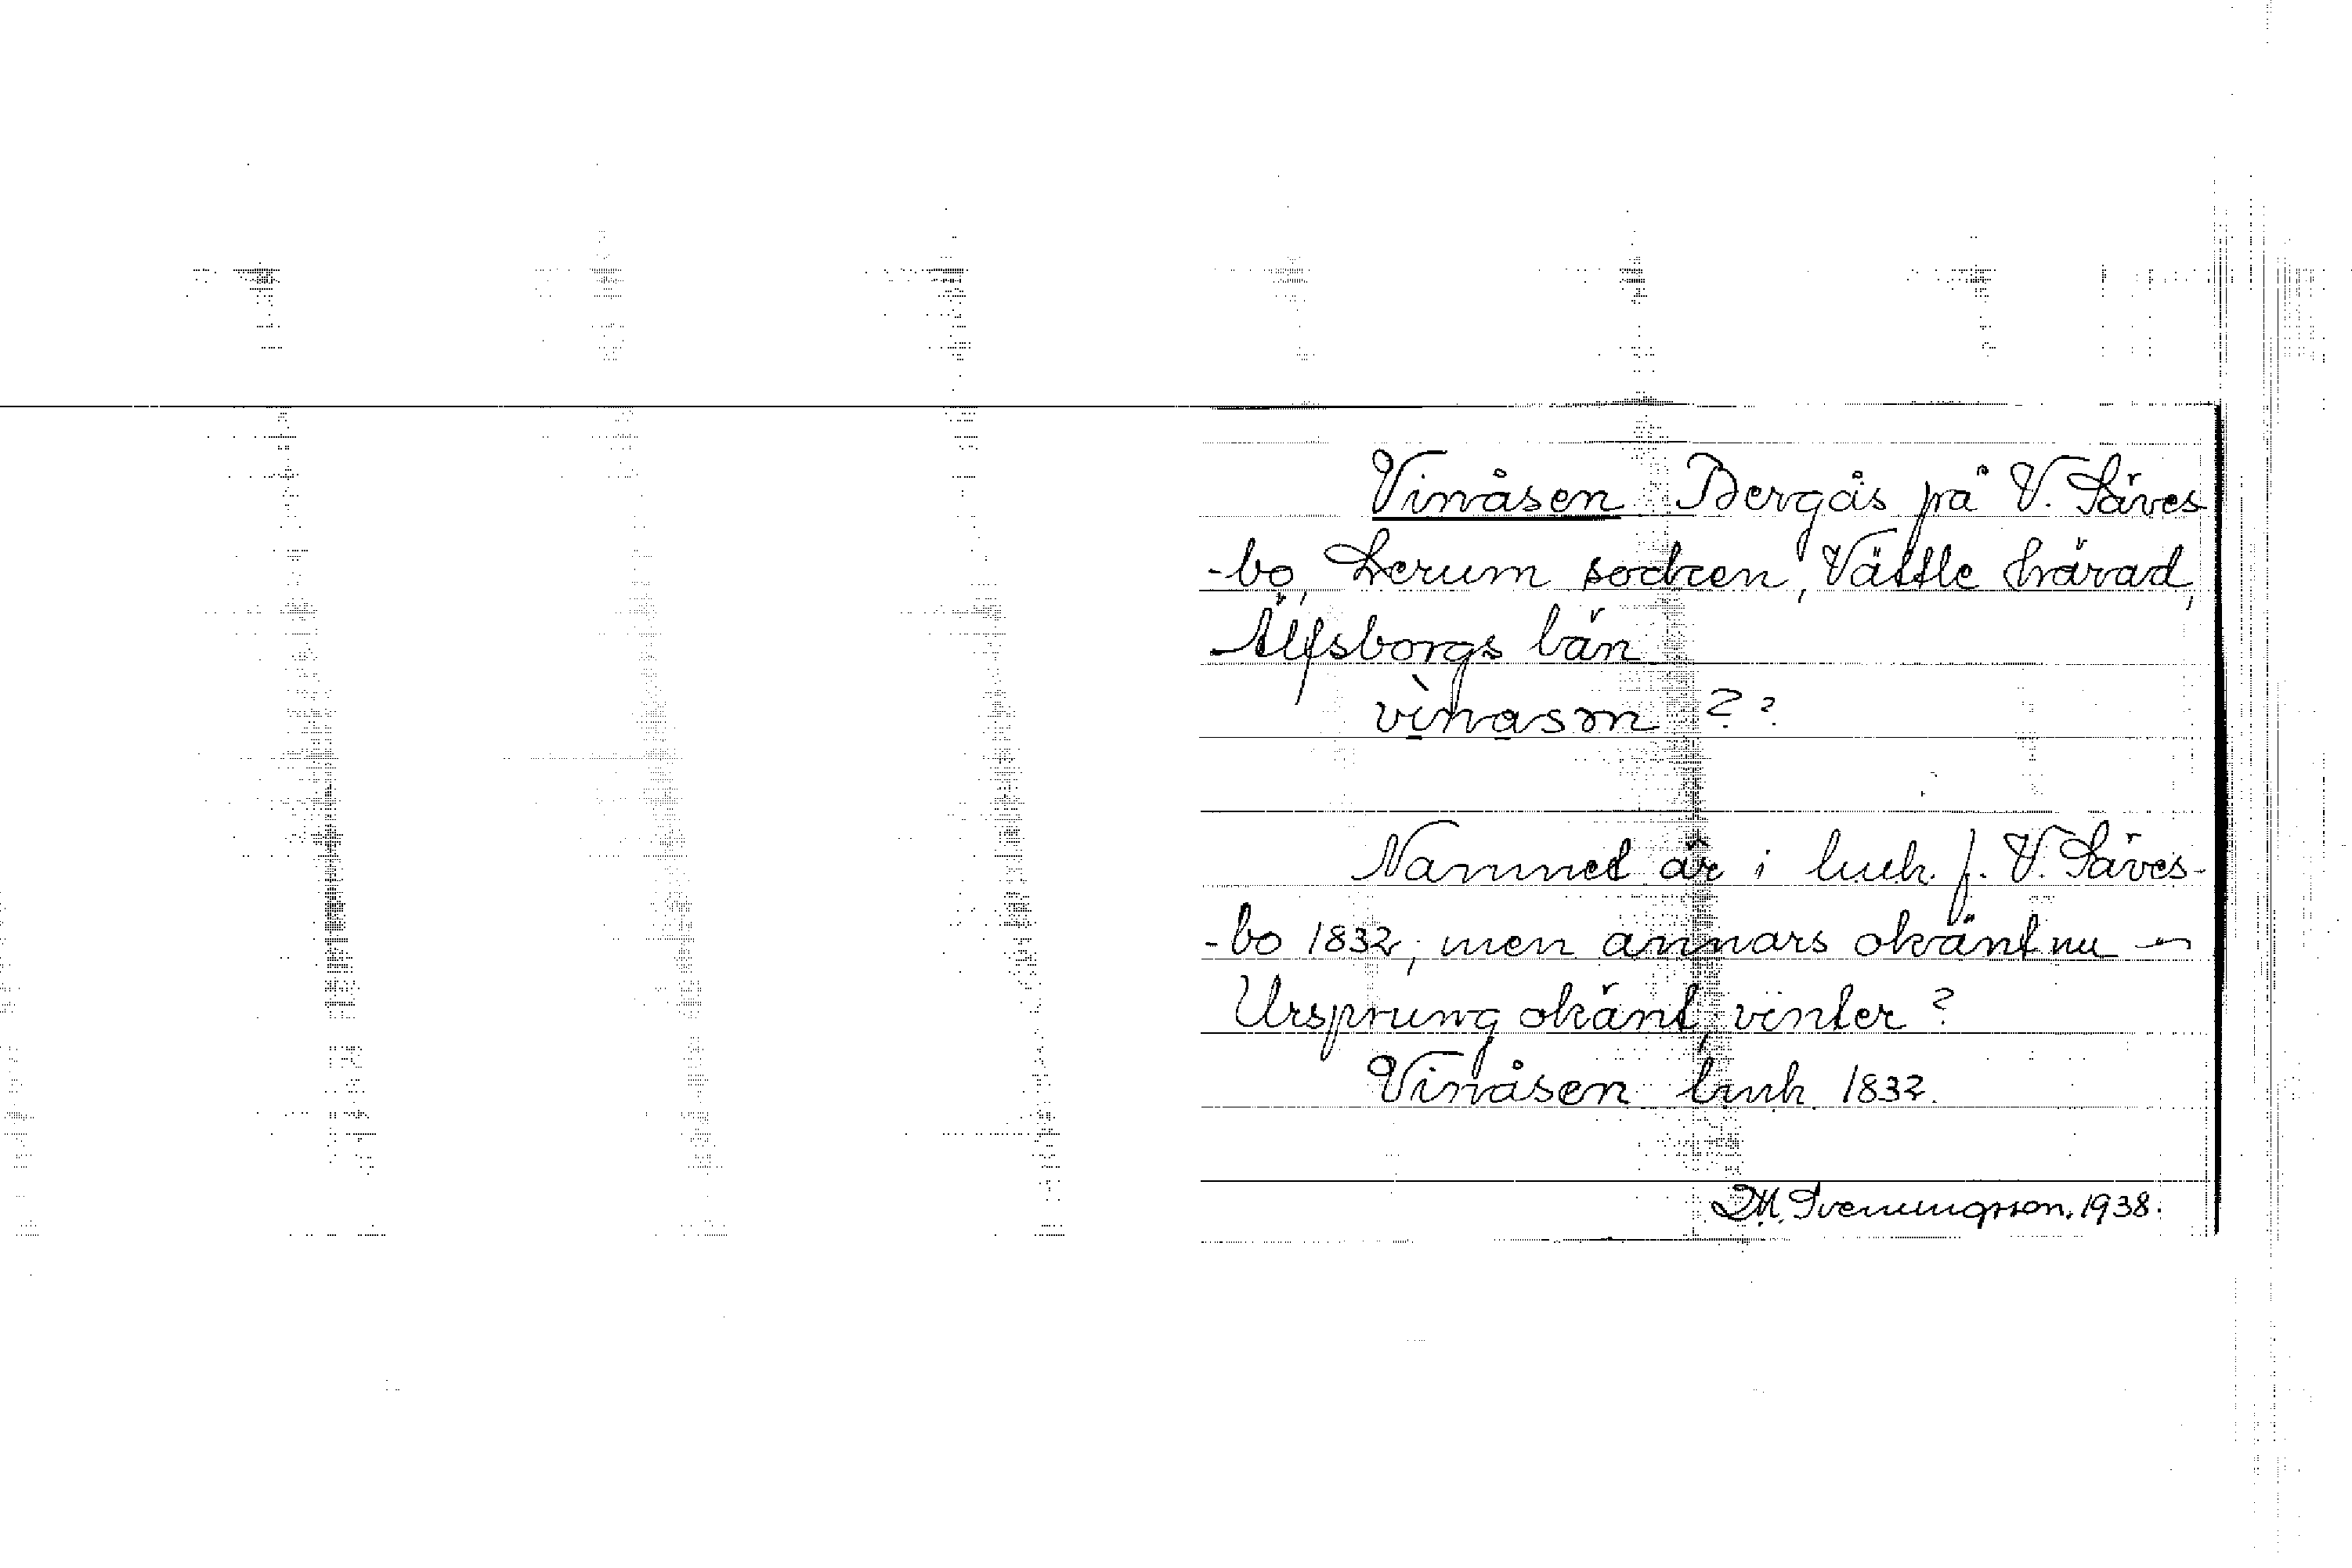 Vinåsen Bergås på V. Säves
-bo, Lerum socken, Vättle härad,
Älfsborgs län
vìnasn ? ?
Namnet är i luk. f. V. Säves-
-bo 1832, men annars okänt nu
Ursprung okänt, vinter ?
Vinåsen luk 1832.
D.M. Svenningsson. 1938.